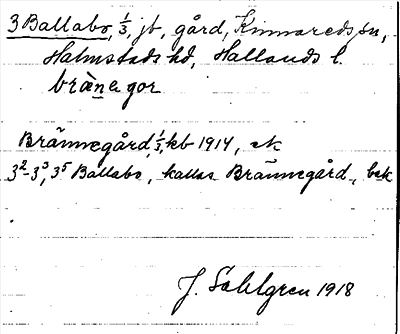 3 Ballabo, 1/3, jb, gård, Kinnareds sn,
Halmstads hd, Hallands l.
bräṉa gor
Brännegård, 1/3, kb 1914, ek
3²-3³, 3⁵ Ballabo, kallas Brännegård, bek
J. Sahlgren 1918